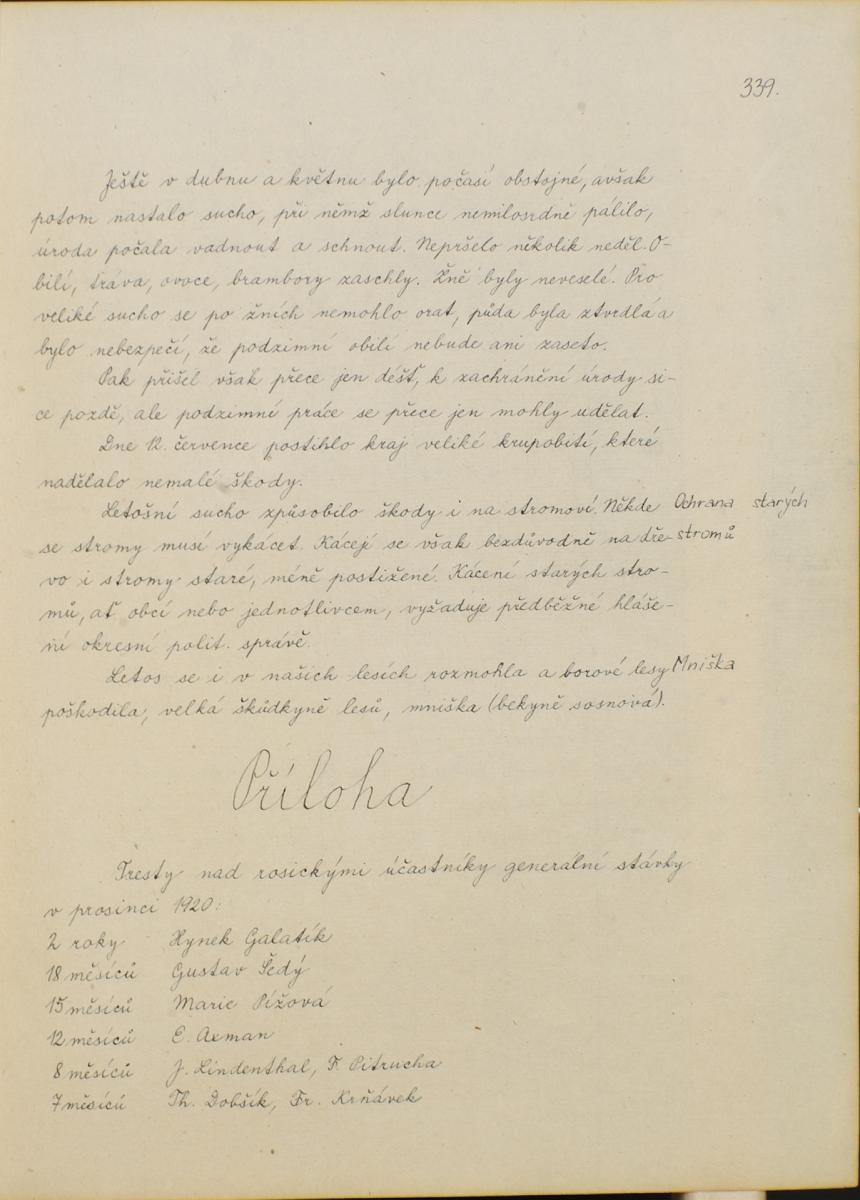 339.
Ještě v dubnu a květnu bylo počasí obstojné, avšak
potom nastalo sucho, při němž slunce nemilosrdně pálilo,
úroda počala vadnout a schnout. Nepršelo několik neděl. O-
bilí, tráva, ovoce, brambory zaschly. Žně byly neveselé. Pro
veliké sucho se po žních nemohlo orat, půda byla ztvrdlá a
bylo nebezpečí, že podzimní obilí nebude ani zaseto.
Pak přišel však přece jen déšť, k zachránění úrody si-
ce pozdě, ale podzimní práce se přece jen mohly udělat.
Dne 12. července postihlo kraj veliké krupobití, které
nadělalo nemalé škody.
Letošní sucho způsobilo škody i na stromoví. Někde Ochrana starých
se stromy musí vykácet. Kácejí se však bezdůvodně na dře- stromů
vo i stromy staré, méně postižené. Kácení starých stro-
mů, ať obcí nebo jednotlivcem, vyžaduje předběžné hláše-
ní okresní polit. správě.
Letos se i v našich lesích rozmohla a borové lesy Mniška
poškodila, velká škůdkyně lesů, mniška (bekyně sosnová).
Příloha
Tresty nad rosickými účastníky generální stávky
v prosinci 1920:
2 roky Hynek Galatík
18 měsíců Gustav Šedý
15 měsíců Marie Pížová
12 měsíců E. Axman
8 měsíců J. Lindenthal, F. Pitrucha
7 měsíců Th. Dobšík, Fr. Krňávek